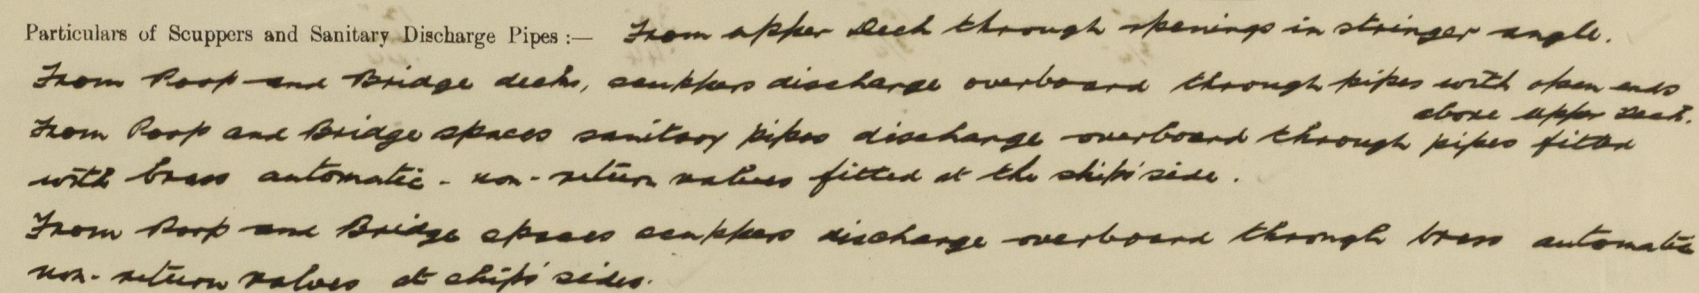 Particulars of Scuppers and Sanitary Discharge Pipes :— From upper Deck through openings in stringer angle.
From Poop and Bridge decks, scuppers discharge overboard through pipes with open ends
above upper Deck.
From Poop and Bridge spaces sanitary pipes discharge overboard through pipes fitted
with brass automatic - non - return valves fitted at the ship's side.
From Poop and Bridge spaces scuppers discharge overboard through brass automatic
non - return valves at ship's sides.